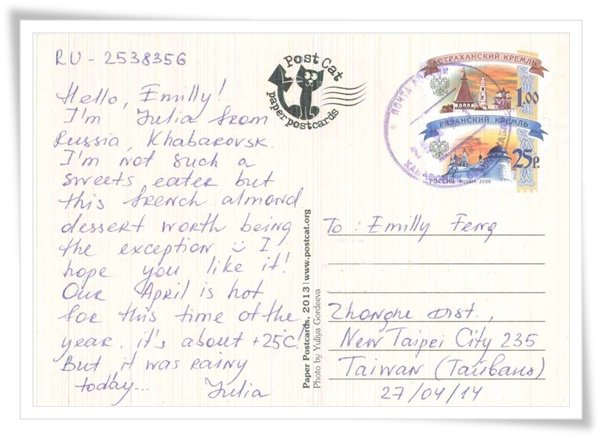 RU - 2538356
Hello, Emilly!
I'm Julia from
Russia, Khabarovsk.
I'm not such a
sweets eater but
this french almond
dessert worth being
the exception :) I
hope you like it!
Our April is hot
for this time of the
year. it's about +25°C.
But it was rainy
today... Julia
Post Cat
paperpostcards
Paper Postcards, 2013 | www.postcat.org
Photo by Yuliya Gordeeva
АСТРАХАНСКИЙ КРЕМЛЬ
1.00
РЯЗАНСКИЙ КРЕМЛЬ
25р.
РОССИЯ RUSSIA 2009
To: Emilly Feng
Zhonghe Dist.,
New Taipei City 235
Taiwan (Тайвань)
27/04/14